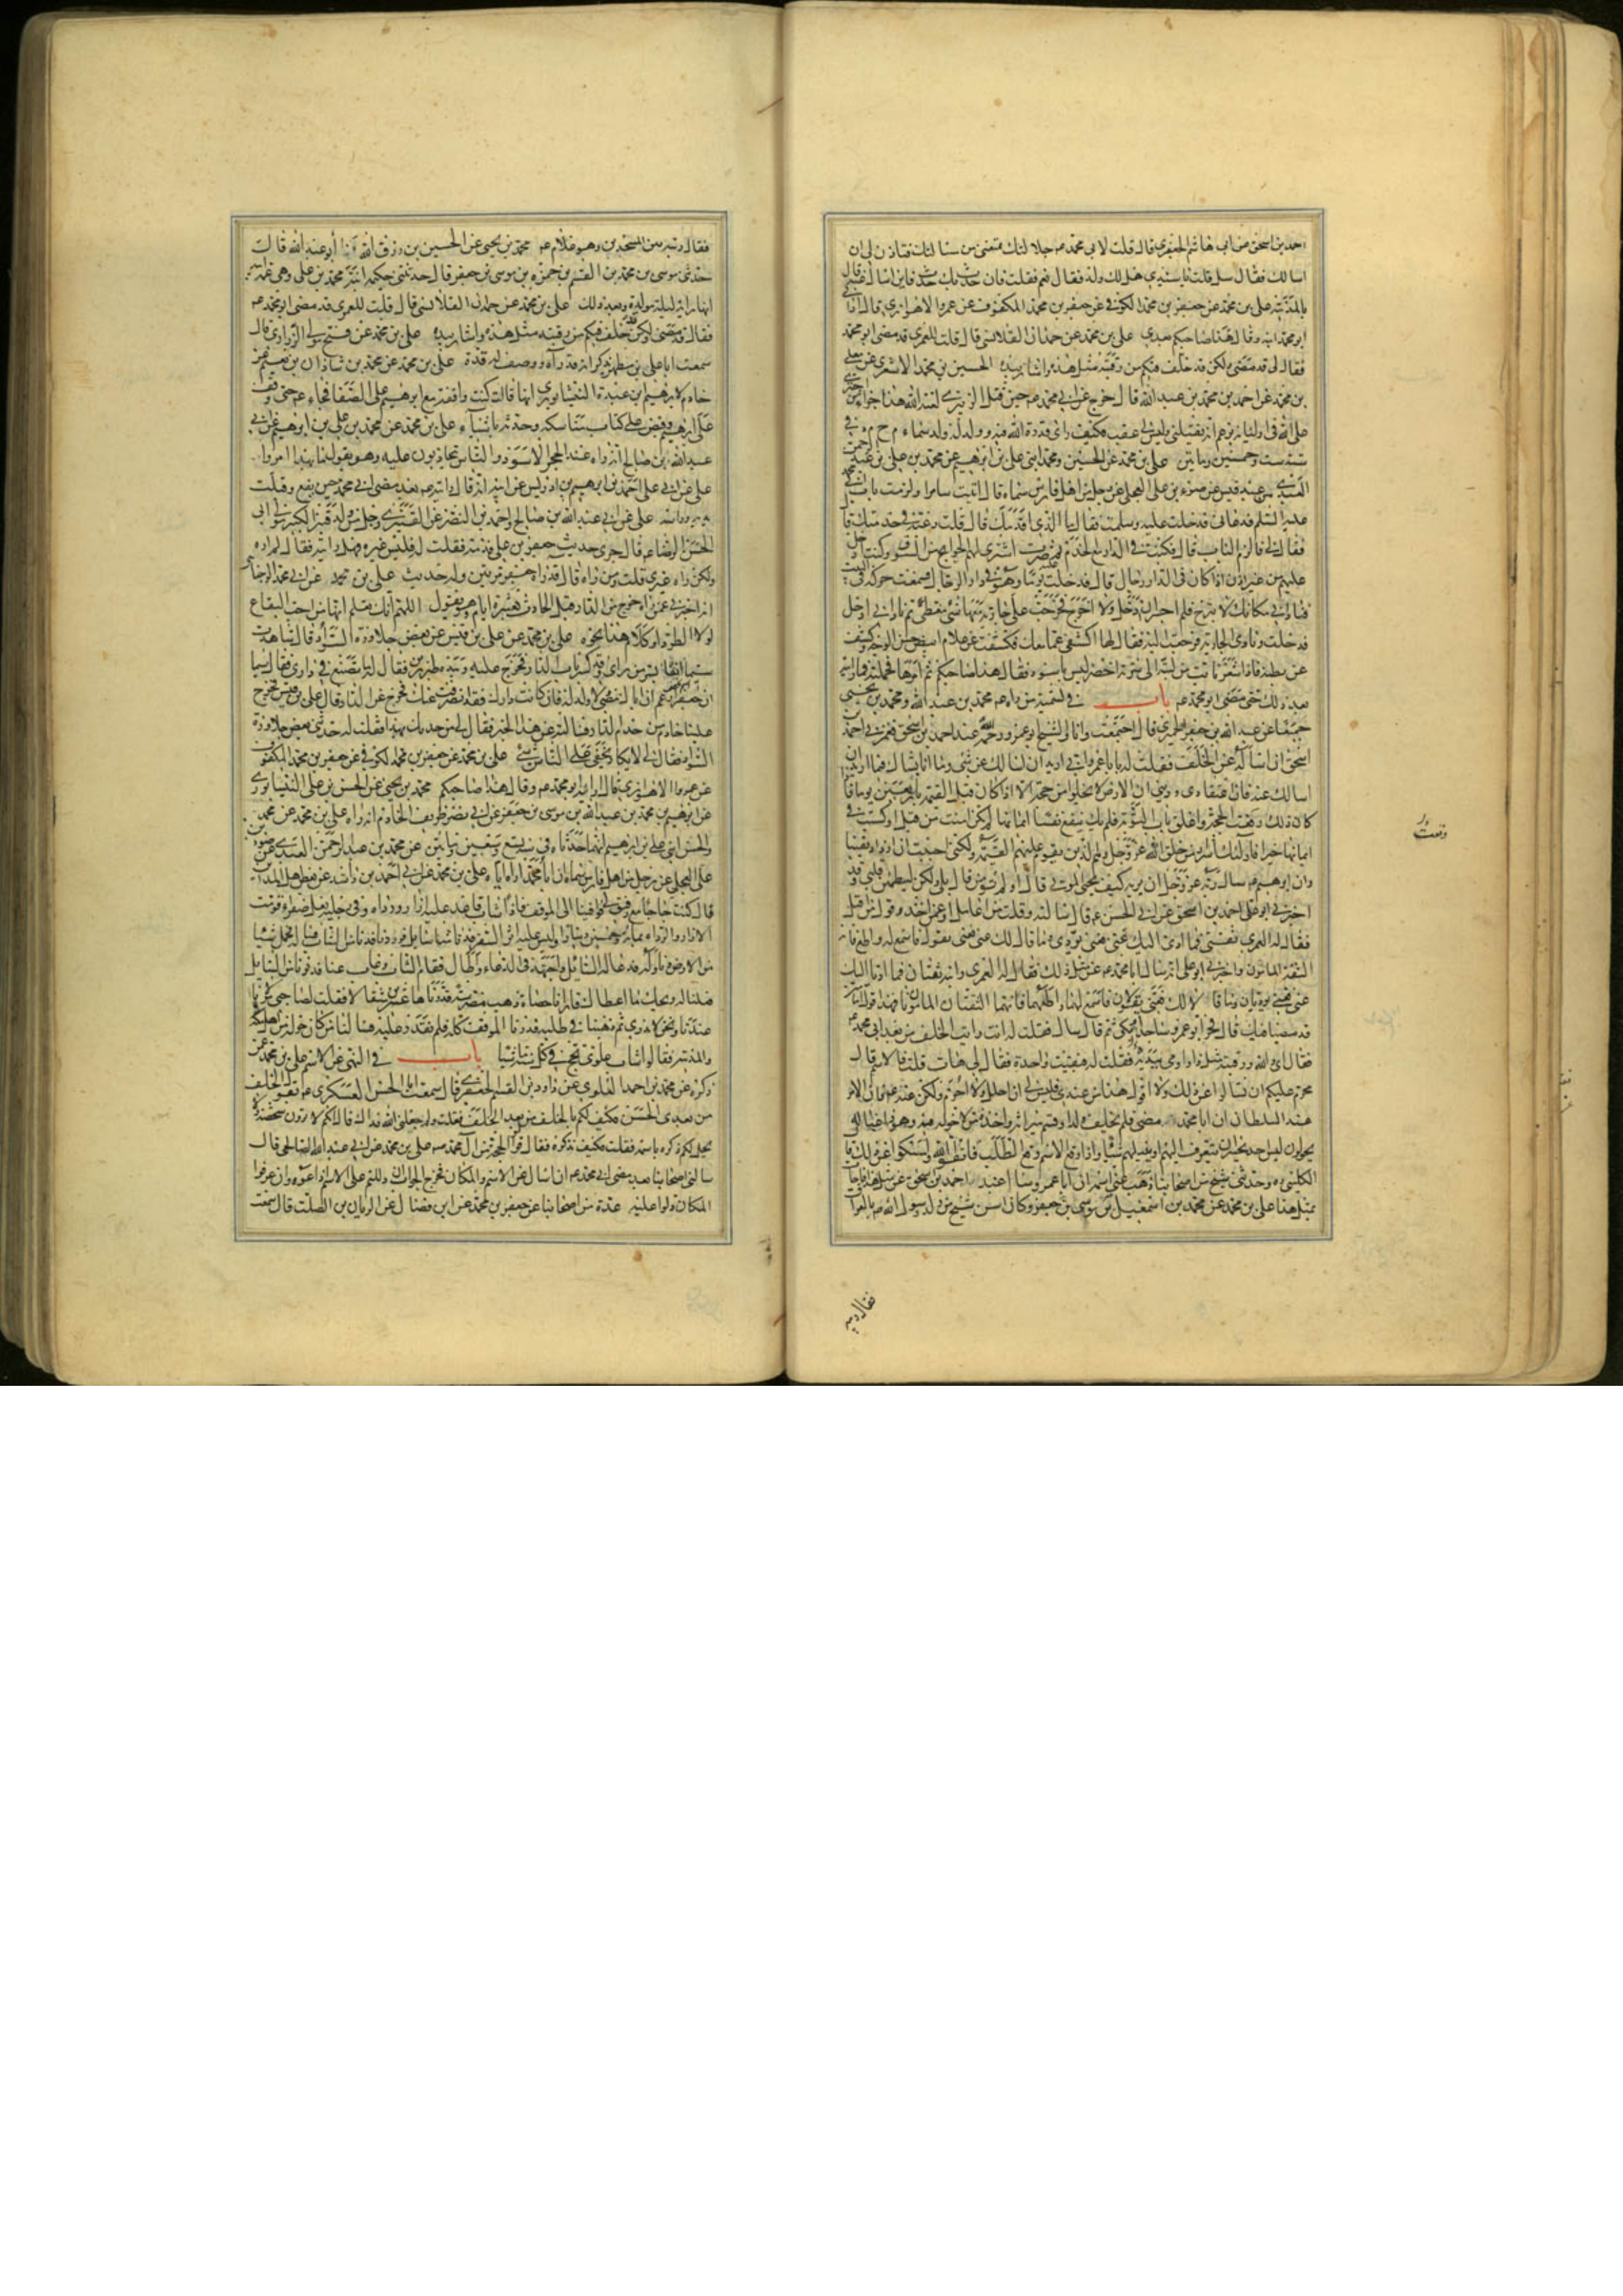 احمد بن اسحق عن ابى هاشم الجعفرى قال قلت لابى محمد عم جلالتك تمنعنى من مسائلتك فتاذن لى ان
اسالك فقال سل قلت يا سيدى هل لك ولد فقال نعم فقلت فان حدث بك حدث فاين اسال عنه قال
بالمدينة على بن محمد عن جعفر بن محمد الكوفى عن جعفر بن محمد المكفوف عن عمرو الاهوازى قال ارانى
ابو محمد ابنه وقال هذا صاحبكم بعدى على بن محمد عن حمدان القلانسى قال قلت للعمرى قد مضى ابو محمد
فقال لى قد مضى ولكن قد خلف فيكم من رقبته مثل هذه واشار بيده الحسين بن محمد الاشعرى عن معلى
بن محمد عن احمد بن محمد بن عبد الله قال خرج عن ابى محمد عم حين قتل الزبيرى لعنه الله هذا جزاء من اجترى
على الله فى اوليائه يزعم انه يقتلنى وليس لى عقب فكيف راى قدرة الله فيه وولد له ولد سماه م ح م د فى
سنة ست وخمسين ومايتين على بن محمد عن الحسين ومحمد ابنى على بن ابرهيم عن محمد بن على بن عبد الرحمن
العبدى من عبد قيس عن ضوء بن على العجلى عن رجل من اهل فارس سماه قال اتيت سامرا ولزمت باب ابى محمد
عليه السلم فدعانى فدخلت عليه وسلمت فقال ما الذى اقدمك قال قلت رغبة فى خدمتك قال
فقال لى فالزم الباب قال فكنت فى الدار مع الخدم ثم صرت اشترى لهم الحوايج من السوق وكنت ادخل
عليهم من غير اذن اذا كان فى الدار رجال قال فدخلت عليه يوما وهو فى دار الرجال فسمعت حركة فى البيت
فنادانى مكانك لا تبرح فلم اجسر ان ادخل ولا اخرج فخرجت على جارية معها شئ مغطى ثم نادانى ادخل
فدخلت ونادى الجارية فرجعت اليه فقال لها اكشفى عما معك فكشفت عن غلام ابيض حسن الوجه وكشف
عن بطنه فاذا شعر نابت من لبته الى سرته اخضر ليس باسود فقال هذا صاحبكم ثم امرها فحملته فما رايته
بعد ذلك حتى مضى ابو محمد عم باب فى تسمية من راه عم محمد بن عبد الله ومحمد بن يحيى
جميعا عن عبد الله بن جعفر الحميرى قال اجتمعت وانا والشيخ ابو عمرو رحمه الله عند احمد بن اسحق فغمزنى احمد بن
اسحق ان اساله عن الخلف فقلت له يا با عمرو انى اريد ان اسالك عن شئ وما انا بشاك فيما اريد ان
اسالك عنه فان اعتقادى ودينى ان الارض لا تخلو من حجة الا اذا كان قبل القيمة باربعين يوما فاذا
كان ذلك رفعت الحجة واغلق باب التوبة فلم يك ينفع نفسا ايمانها لم تكن امنت من قبل او كسبت فى
ايمانها خيرا فاولئك اشرار من خلق الله عز وجل وهم الذين تقوم عليهم القيمة ولكنى احببت ان ازداد يقينا
وان ابرهيم عم سال ربه عز وجل ان يريه كيف يحيى الموتى قال اولم تؤمن قال بلى ولكن ليطمئن قلبى وقد
اخبرنى ابو على احمد بن اسحق عن ابى الحسن عم قال سالته وقلت من اعامل او عمن اخذ وقول من اقبل
فقال له العمرى ثقتى فما ادى اليك عنى فعنى يؤدى وما قال لك عنى فعنى يقول فاسمع له واطع فانه
الثقة المامون واخبرنى ابو على انه سال ابا محمد عم عن مثل ذلك فقال له العمرى وابنه ثقتان فما اديا اليك
عنى فعنى يؤديان وما قالا لك فعنى يقولان فاسمع لهما واطعهما فانهما الثقتان المامونان فهذا قول امامين
قد مضيا فيك قال فخر ابو عمرو ساجدا وبكى ثم قال سل فقلت له انت رايت الخلف من بعد ابى محمد عم
فقال اى والله ورقبته مثل ذا واومى بيديه فقلت له فبقيت واحدة فقال لى هات قلت فالاسم قال
محرم عليكم ان تسالوا عن ذلك ولا اقول هذا من عندى فليس لى ان احلل ولا احرم ولكن عنه عم فان الامر
عند السلطان ان ابا محمد مضى ولم يخلف ولدا وقسم ميراثه واخذه من لا حق له فيه وهو ذا عياله
يجولون ليس احد يجسر ان يتعرف اليهم او ينيلهم شيئا واذا وقع الاسم وقع الطلب فاتقوا الله وامسكوا عن ذلك قال
الكلينى ره وحدثنى شيخ من اصحابنا ذهب عنى اسمه ان ابا عمرو سال عنه احمد بن اسحق عن مثل هذا فاجاب
بمثل هذا على بن محمد عن محمد بن اسمعيل بن موسى بن جعفر وكان اسن شيخ من ولد رسول الله ص بالعراق
فقال رايته بين المسجدين وهو غلام عم محمد بن يحيى عن الحسين بن رزق الله ابو عبد الله قال
حدثنى موسى بن محمد بن القسم بن حمزة بن موسى بن جعفر قال حدثتنى حكيمة ابنة محمد بن على وهى عمة ابيه
انها راته ليلة مولده وبعد ذلك على بن محمد عن حمدان القلانسى قال قلت للعمرى قد مضى ابو محمد عم
فقال قد مضى ولكن قد خلف فيكم من رقبته مثل هذه واشار بيده على بن محمد عن فتح مولى الزرارى قال
سمعت ابا على بن مطهر يذكر انه قد رآه ووصف له قده على بن محمد عن محمد بن شاذان بن نعيم عن
خادم لابرهيم بن عبدة النيشابورى انها قالت كنت واقفة مع ابرهيم على الصفا فجاء عم حتى وقف
على ابرهيم وقبض على كتاب مناسكه وحدثه باشياء على بن محمد عن محمد بن على بن ابرهيم عن ابى
عبد الله بن صالح انه راه عند الحجر الاسود والناس يتجاذبون عليه وهو يقول ما بهذا امروا
على عن ابى على احمد بن ابرهيم بن ادريس عن ابيه انه قال رايته عم بعد مضى ابى محمد حين ايفع وقبلت
يديه وراسه على عن ابى عبد الله بن صالح واحمد بن النضر عن القنبرى رجل من ولد قنبر الكبير مولى ابى
الحسن الرضا عم قال جرى حديث جعفر بن على فذمه فقلت له فليس غيره فهل رايته فقال لم اره
ولكن راه غيرى قلت ومن راه قال قد راه جعفر مرتين وله حديث على بن محمد عن ابى محمد الوجنائى
انه اخبرنى عمن راه خرج من الدار قبل الحادث بعشرة ايام وهو يقول اللهم انك تعلم انها من احب البقاع
لولا الطرد او كلام هذا نحوه على بن محمد عن على بن قيس عن بعض جلاوزة السواد قال شاهدت
سيما انفا بسر من راى وقد كسر باب الدار فخرج عليه وبيده طبرزين فقال له ما تصنع فى دارى فقال سيما
ان جعفرا زعم ان اباك مضى ولا ولد له فان كانت دارك فقد انصرفت عنك فخرج عن الدار قال على بن قيس فخرج
علينا خادم من خدام الدار فسالته عن هذا الخبر فقال لى من حدثك بهذا فقلت له حدثنى بعض جلاوزة
السواد فقال لى لا يكاد يخفى على الناس شئ على بن محمد عن جعفر بن محمد الكوفى عن جعفر بن محمد المكفوف
عن عمرو الاهوازى قال ارانيه ابو محمد عم وقال هذا صاحبكم محمد بن يحيى عن الحسن بن على النيسابورى
عن ابرهيم بن محمد بن عبد الله بن موسى بن جعفر عن ابى نصر ظريف الخادم انه راه على بن محمد عن محمد
والحسن ابنى على بن ابرهيم انهما حدثاه فى سنة تسع وسبعين ومايتين عن محمد بن عبد الرحمن العبدى عن ضوء بن
على العجلى عن رجل من اهل فارس سماه ان ابا محمد اراه اياه على بن محمد عن ابى احمد بن راشد عن بعض اهل المداين
قال كنت حاجا مع رفيق لى فوافينا الى الموقف فاذا شاب قاعد عليه ازار ورداء وفى رجليه نعل صفراء قومت
الازار والرداء بمائة وخمسين دينارا وليس عليه اثر السفر فدنا منا سايل فرددناه فدنا من الشاب فساله فحمل شيئا
من الارض وناوله فدعا له السائل واجتهد فى الدعاء واطال فقام الشاب وغاب عنا فدنونا من السايل
فقلنا له ويحك ما اعطاك فارانا حصاة ذهب مضرسة قدرناها عشرين مثقالا فقلت لصاحبى مولانا
عندنا ونحن لا ندرى ثم ذهبنا فى طلبه فدرنا الموقف كله فلم نقدر عليه فسالنا من كان حوله من اهل مكة
والمدينة فقالوا شاب علوى يحج فى كل سنة ماشيا باب فى النهى عن الاسم على بن محمد عمن
ذكره عن محمد بن احمد العلوى عن داود بن القسم الجعفرى قال سمعت ابا الحسن العسكرى عم يقول الخلف
من بعدى الحسن فكيف لكم بالخلف من بعد الخلف فقلت ولم جعلنى الله فداك قال انكم لا ترون شخصه ولا
يحل لكم ذكره باسمه فقلت فكيف نذكره فقال قولوا الحجة من آل محمد ص على بن محمد عن ابى عبد الله الصالحى قال
سالنى اصحابنا بعد مضى ابى محمد عم ان اسال عن الاسم والمكان فخرج الجواب ان دللتهم على الاسم اذاعوه وان عرفوا
المكان دلوا عليه عدة من اصحابنا عن جعفر بن محمد عن ابن فضال عن الريان بن الصلت قال سمعت
فقال رايته